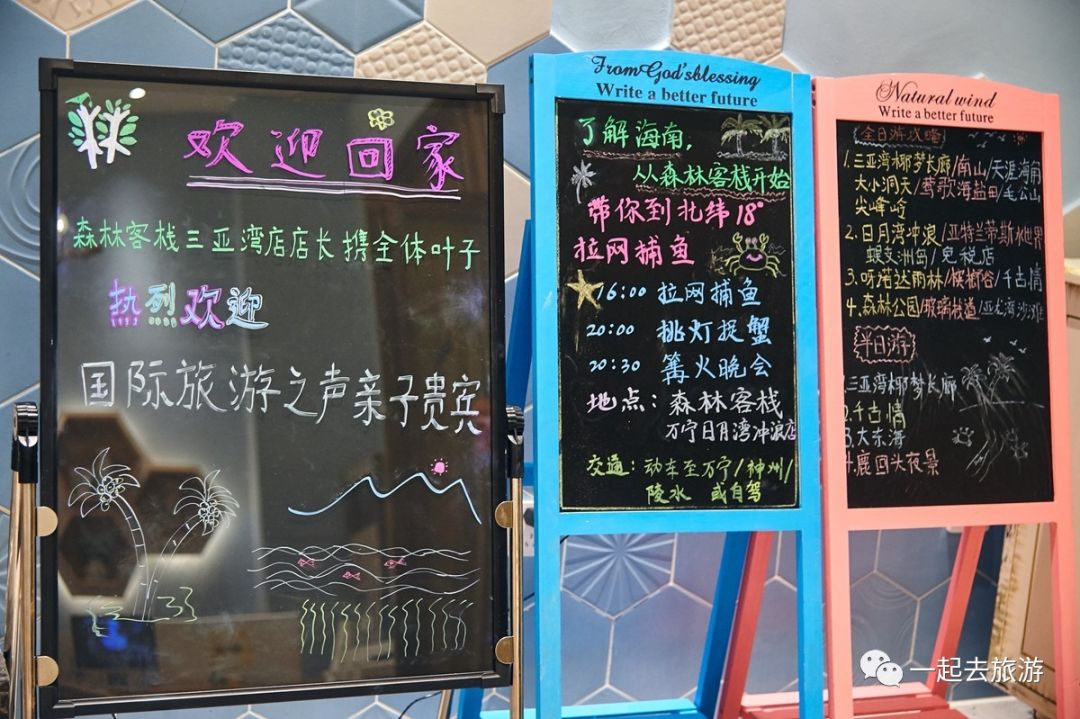 林
欢迎回家
森林客栈三亚湾店店长携全体叶子
热烈欢迎
国际旅游之声亲子贵宾
From God'sblessing
Write a better future
了解海南,
从森林客栈开始
带你到北纬18°
拉网捕鱼
16:00 拉网捕鱼
20:00 挑灯捉蟹
20:30 篝火晚会
地点:森林客栈
万宁日月湾冲浪店
交通:动车至万宁/神州/
陵水 或自驾
Natural wind
Write a better future
全日游攻略
1.三亚湾椰梦长廊/南山/天涯海角
大小洞天/莺歌海盐田/毛公山
尖峰岭
2.日月湾冲浪/亚特兰蒂斯水世界
蜈支洲岛/免税店
3.呀诺达雨林/槟榔谷/千古情
4.森林公园/玻璃栈道/亚龙湾沙滩
半日游
1.三亚湾椰梦长廊
2.千古情
3.大东海
4.鹿回头夜景
一起去旅游